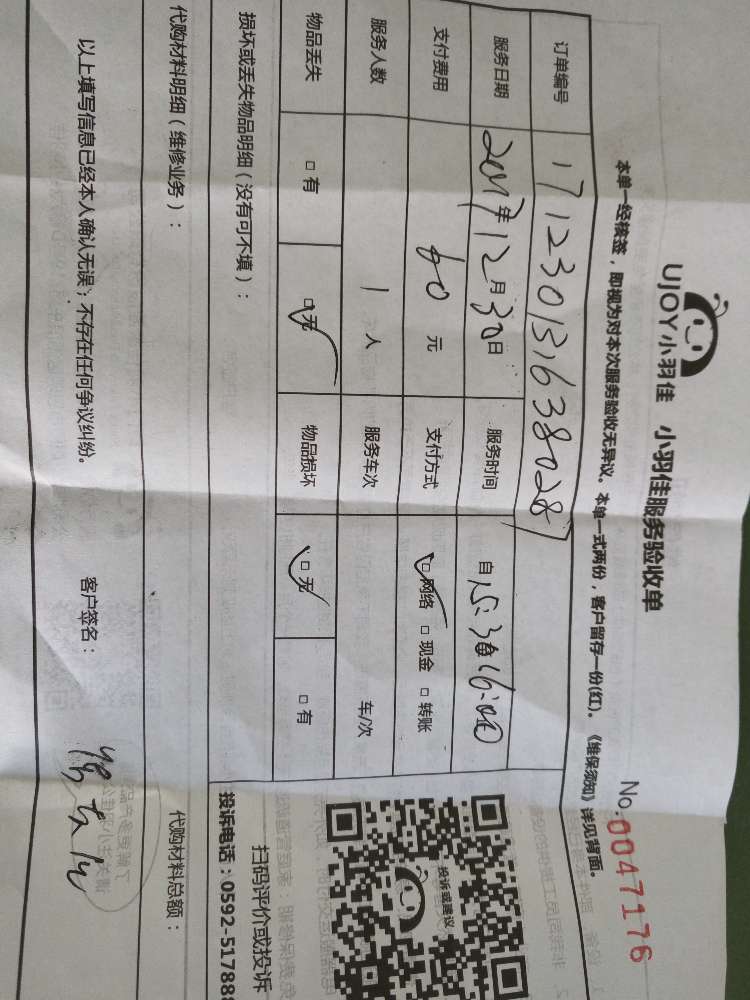 UJOY小羽佳 小羽佳服务验收单
No.0047176
本单一经核签，即视为对本次服务验收无异议。本单一式两份，客户留存一份(红)。《维保须知》详见背面。
订单编号 17123013163802​87
服务日期 2017年12月30日 服务时间 自15:30 16:00
支付费用 60元 支付方式 □网络 □现金 □转账
服务人数 1人 服务车次 车/次
物品丢失 □有 □无 物品损坏 □无 □有
损坏或丢失物品明细（没有可不填）：
投诉或建议
扫码评价或投诉
投诉电话：0592-517888
代购材料明细（维修业务）： 代购材料总额：
以上填写信息已经本人确认无误；不存在任何争议纠纷。 客户签名：